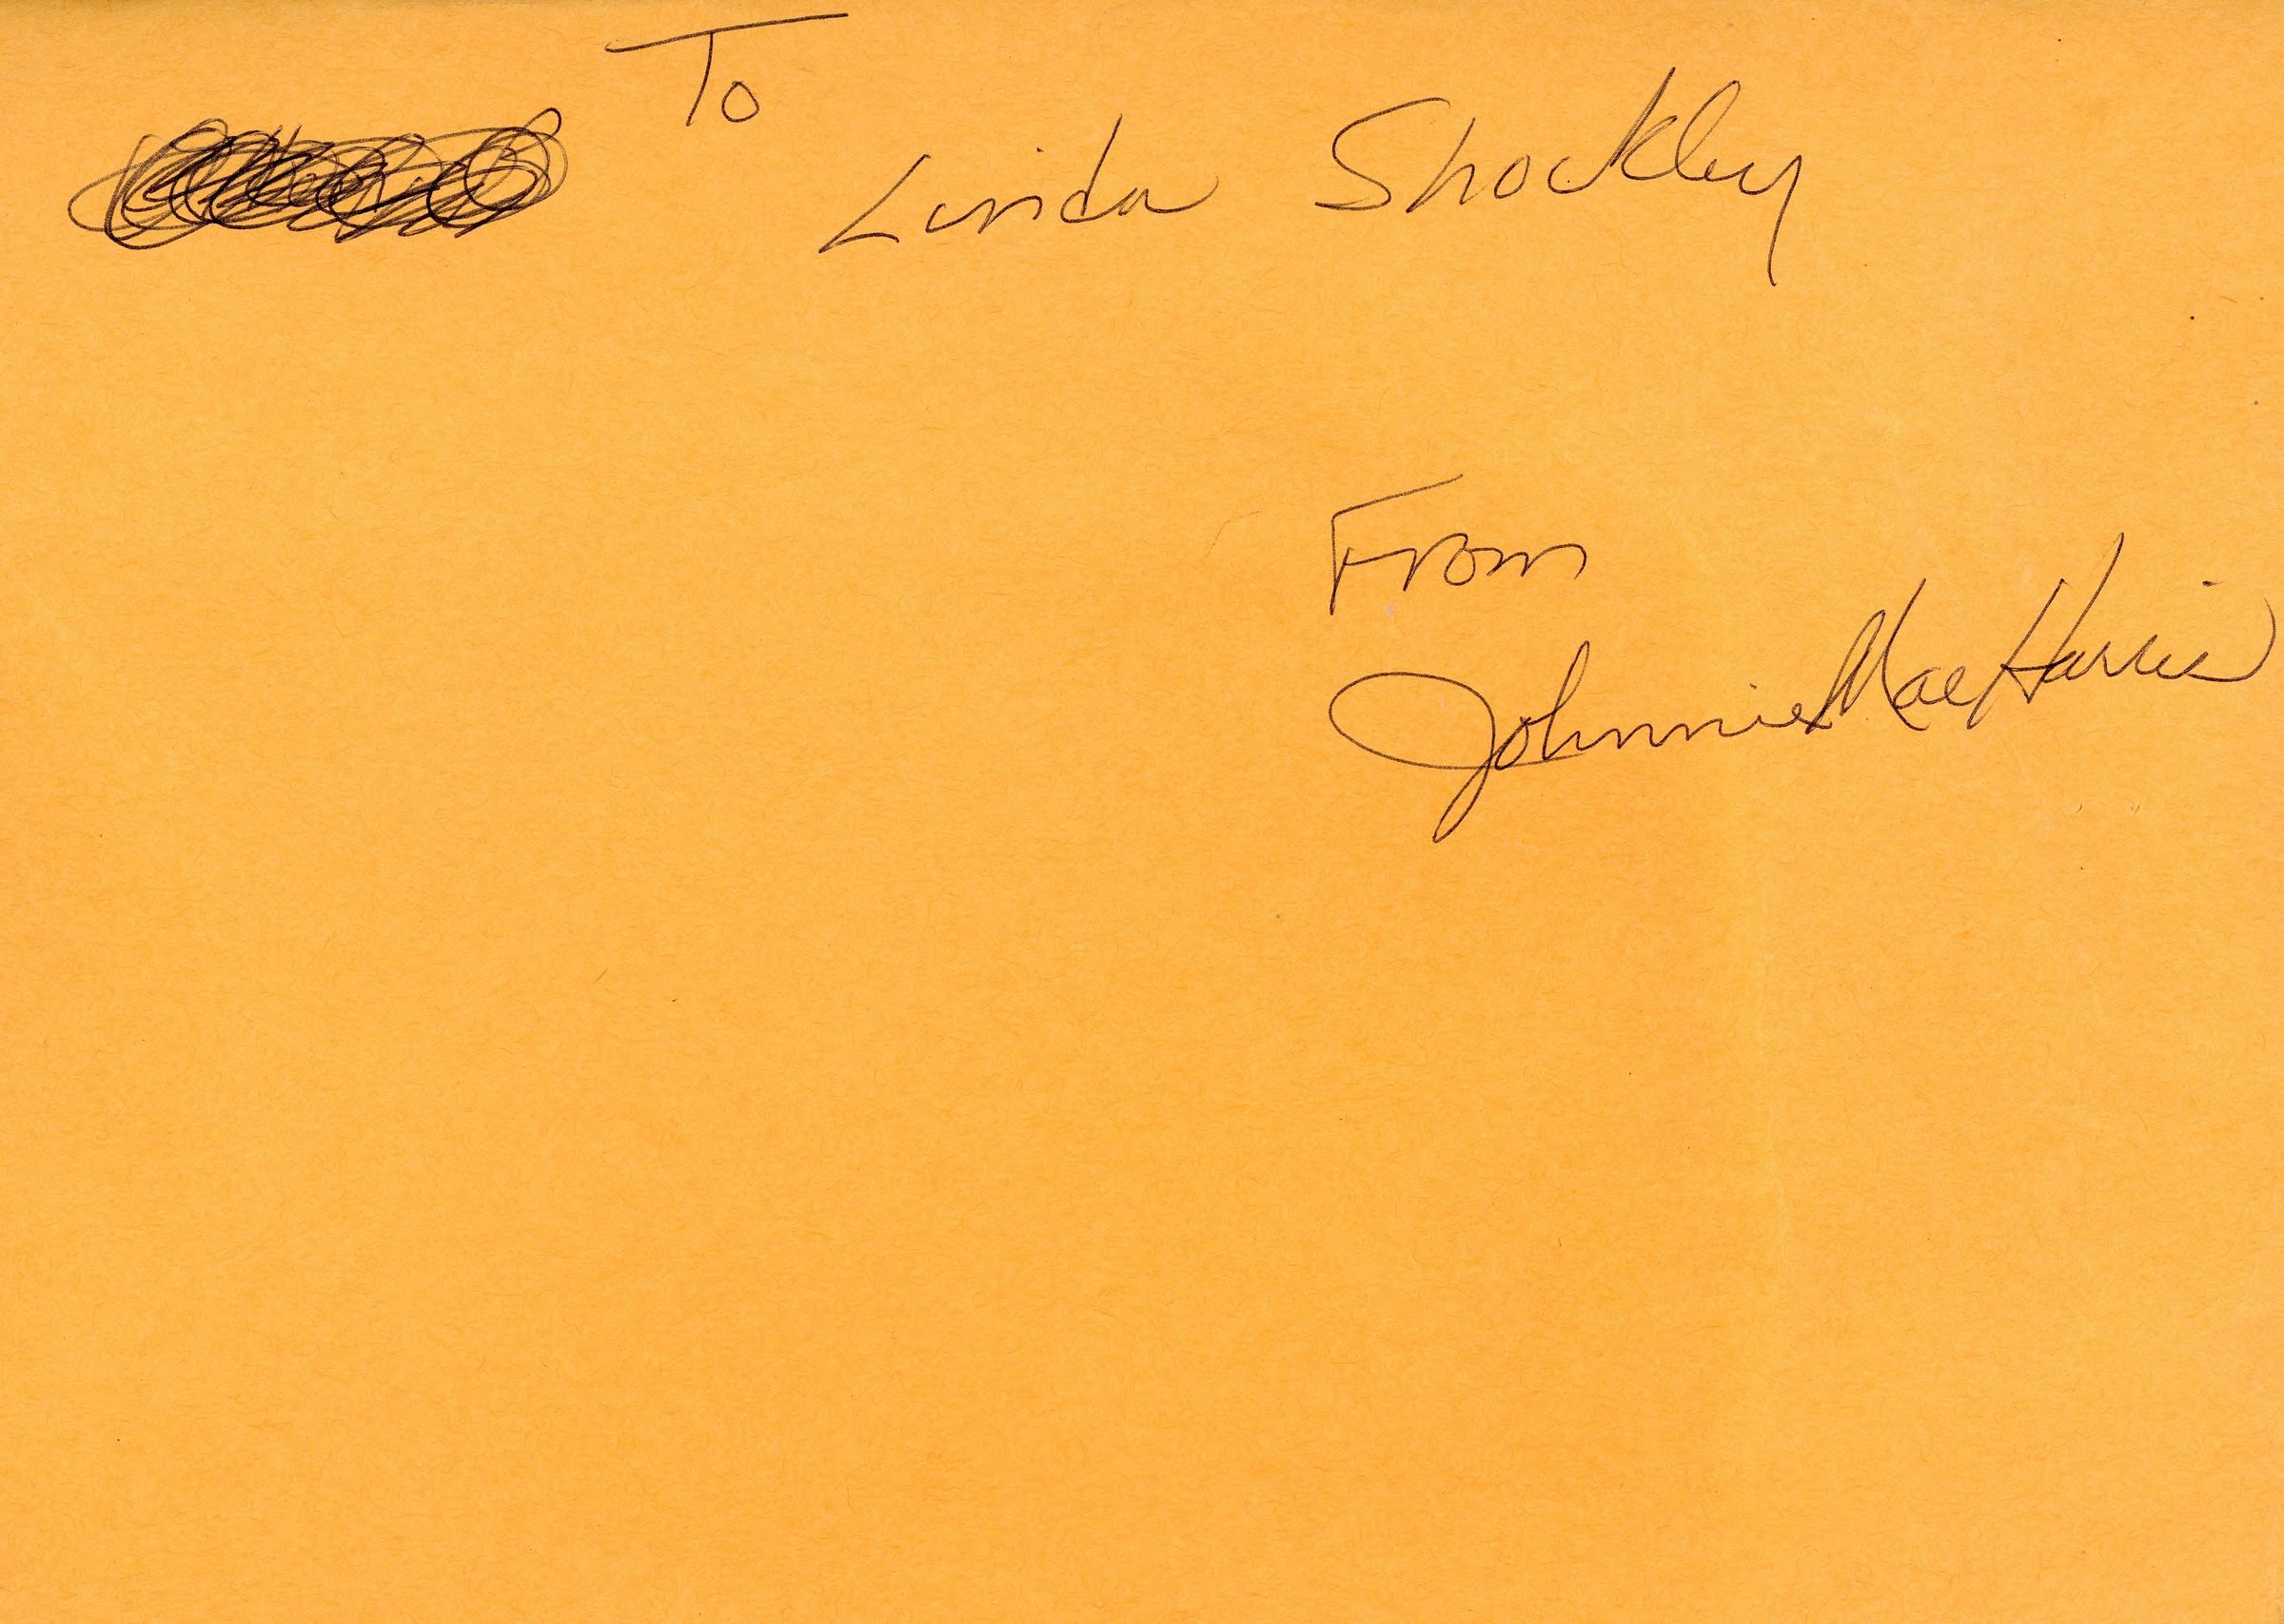 To
Linda Shockley
From
Johnnie Mae Harris